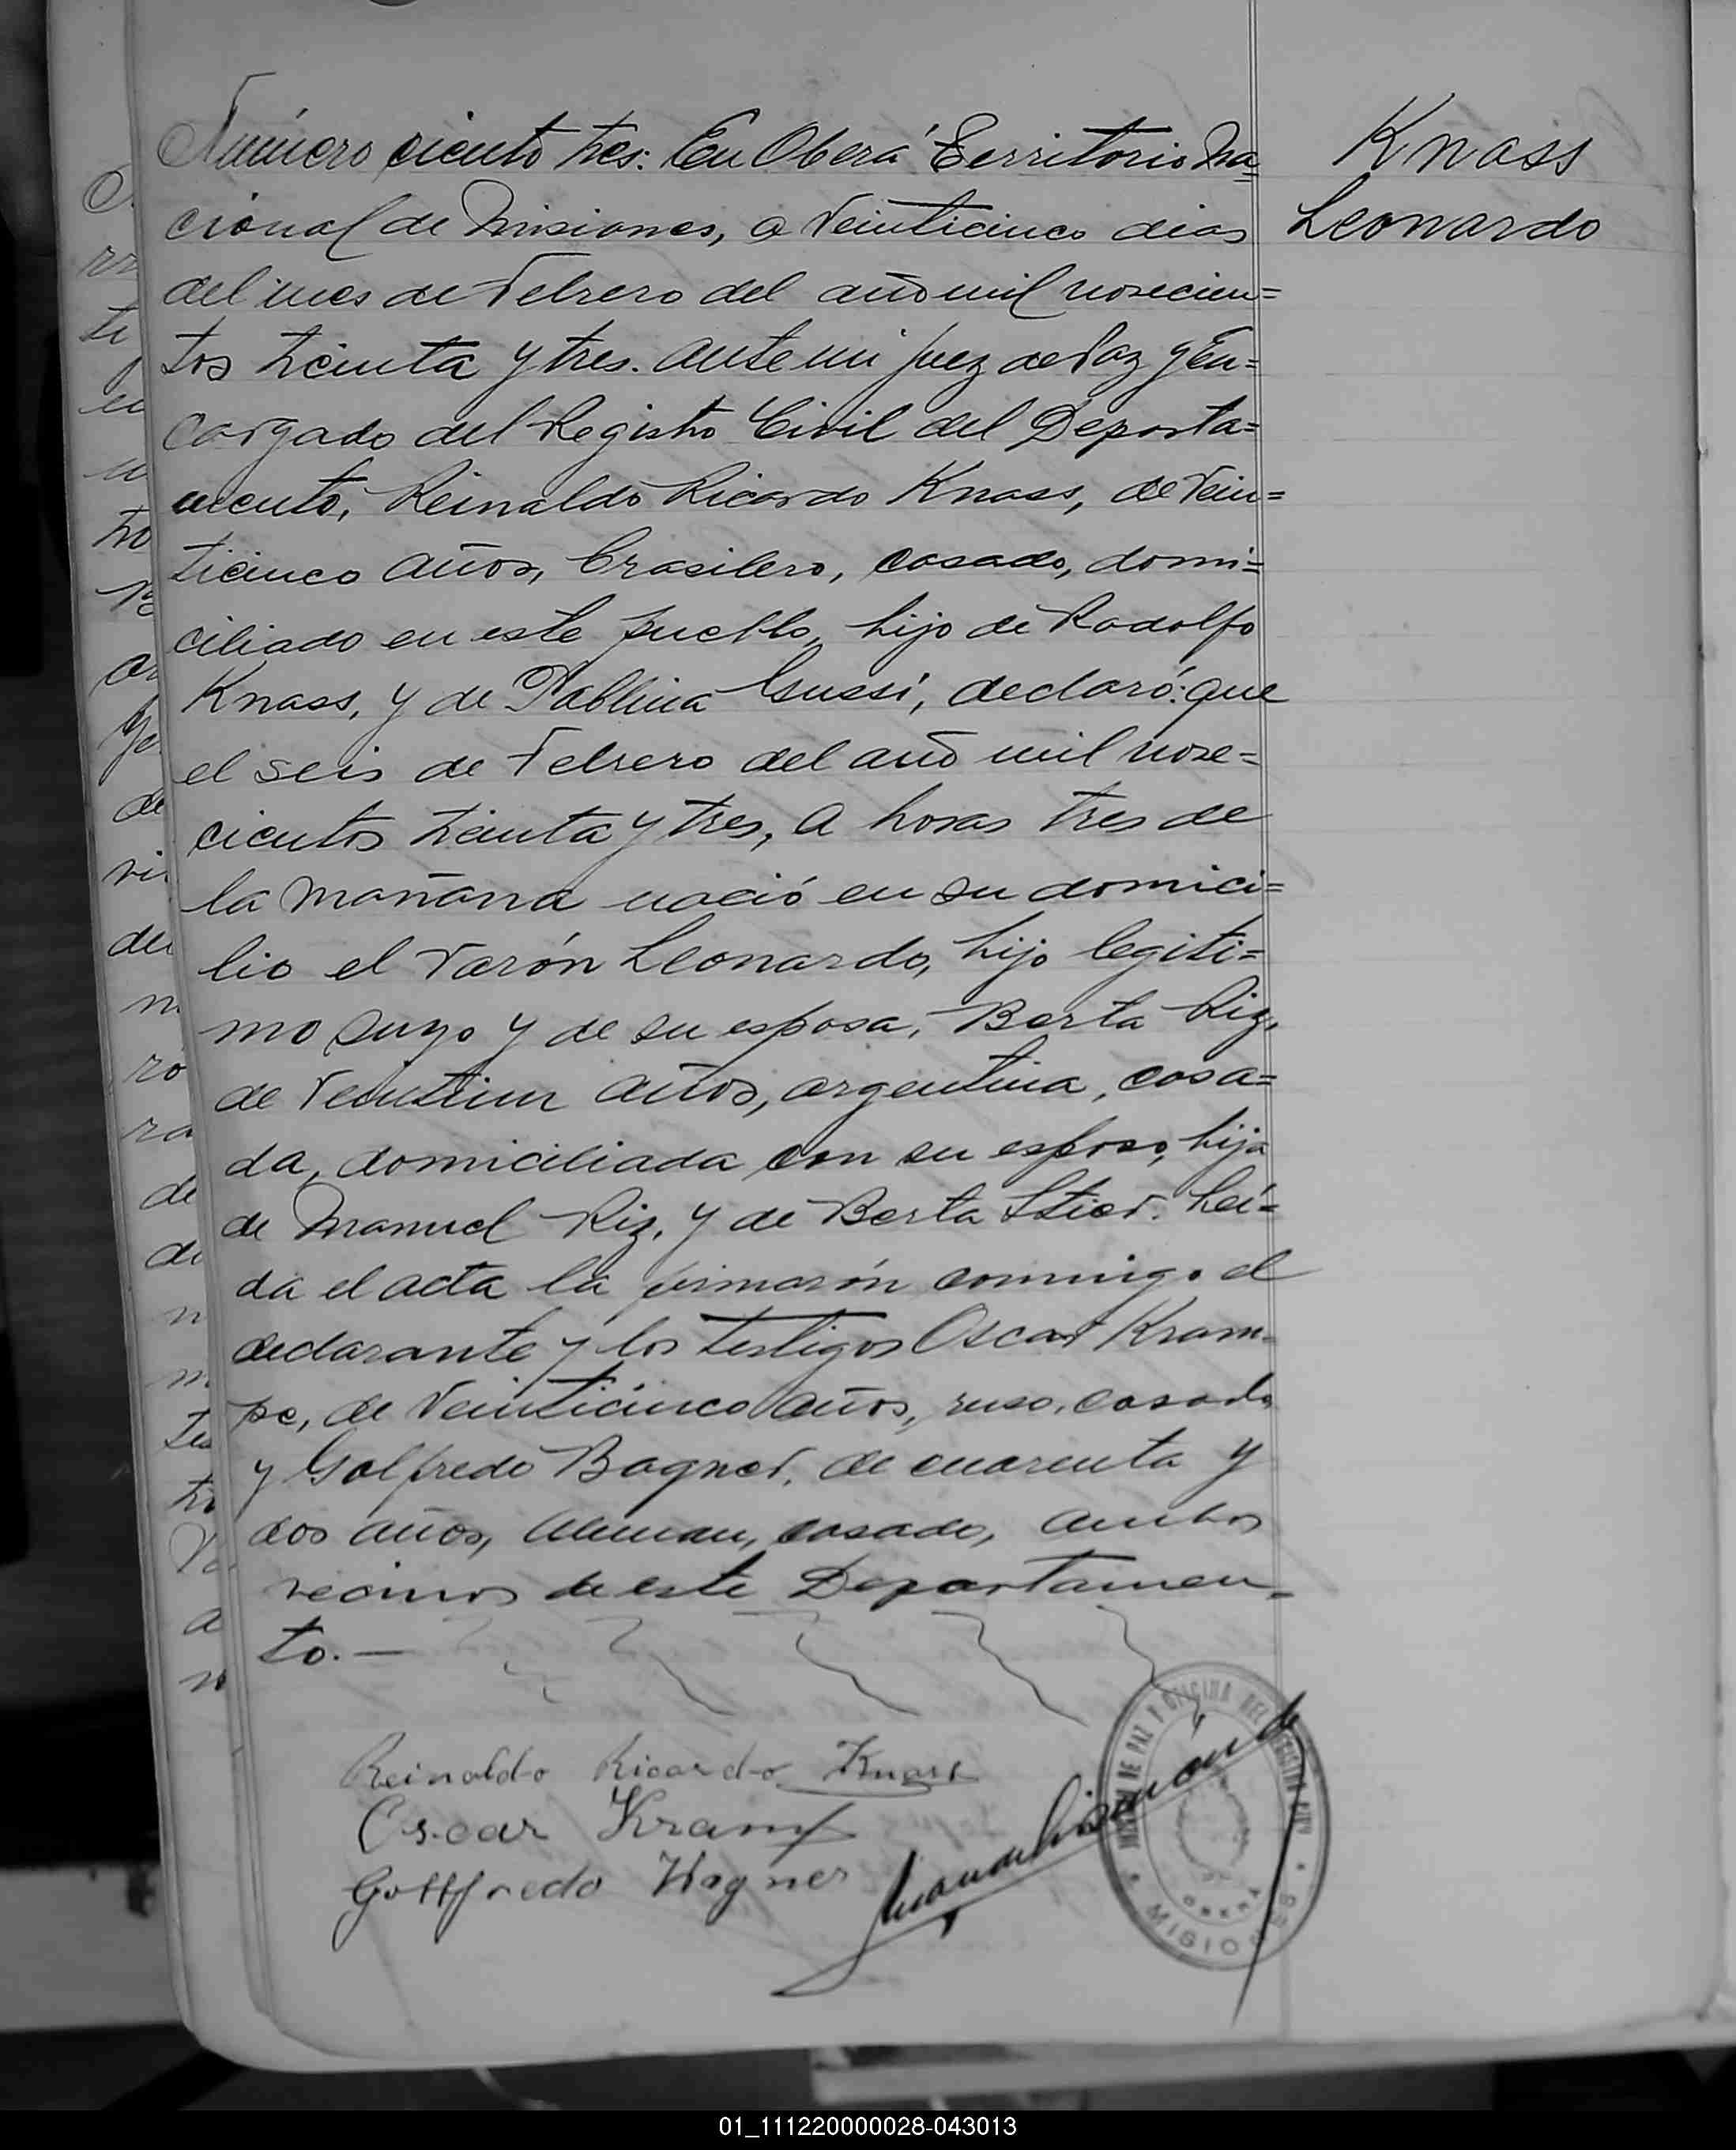 Número ciento tres: En Oberá Territorio Na=
cional de Misiones, a Veinticinco dias
del mes de Febrero del año mil novecien=
tos treinta y tres. ante mi juez de Paz y En=
cargado del Registro Civil del Departa=
mento, Reinaldo Ricardo Knass, de Vein=
ticinco años, brasilero, casado, domi=
ciliado en este pueblo, hijo de Rodolfo
Knass, y de Pablina Gussi, declaró: que
el seis de Febrero del año mil nove=
cientos treinta y tres, a horas tres de
la mañana nació en su domici=
lio el Varón Leonardo, hijo legiti=
mo suyo y de su esposa, Berta Riz,
de Veintiun años, argentina, casa=
da, domiciliada con su esposo, hija
de Manuel Riz, y de Berta Stier. Leí=
da el acta la firmarón conmigo el
declarante y los testigos Oscar Kram-
pe, de Veinticinco años, ruso, casado
y Golfredo Bagner, de cuarenta y
dos años, Aleman, casado, ambos
vecinos de este Departamen-
to.—
Knass
Leonardo
Reinaldo Ricardo Knass
Oscar Kramp
Gottfredo Wagner
JUZGADO DE PAZ Y OFICINA DEL REGISTRO CIVIL
OBERA
MISIONES
01_111220000028-043013